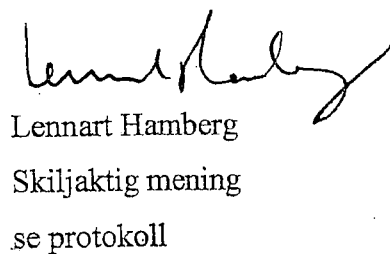 Lennart Hamberg
Lennart Hamberg
Skiljaktig mening
se protokoll